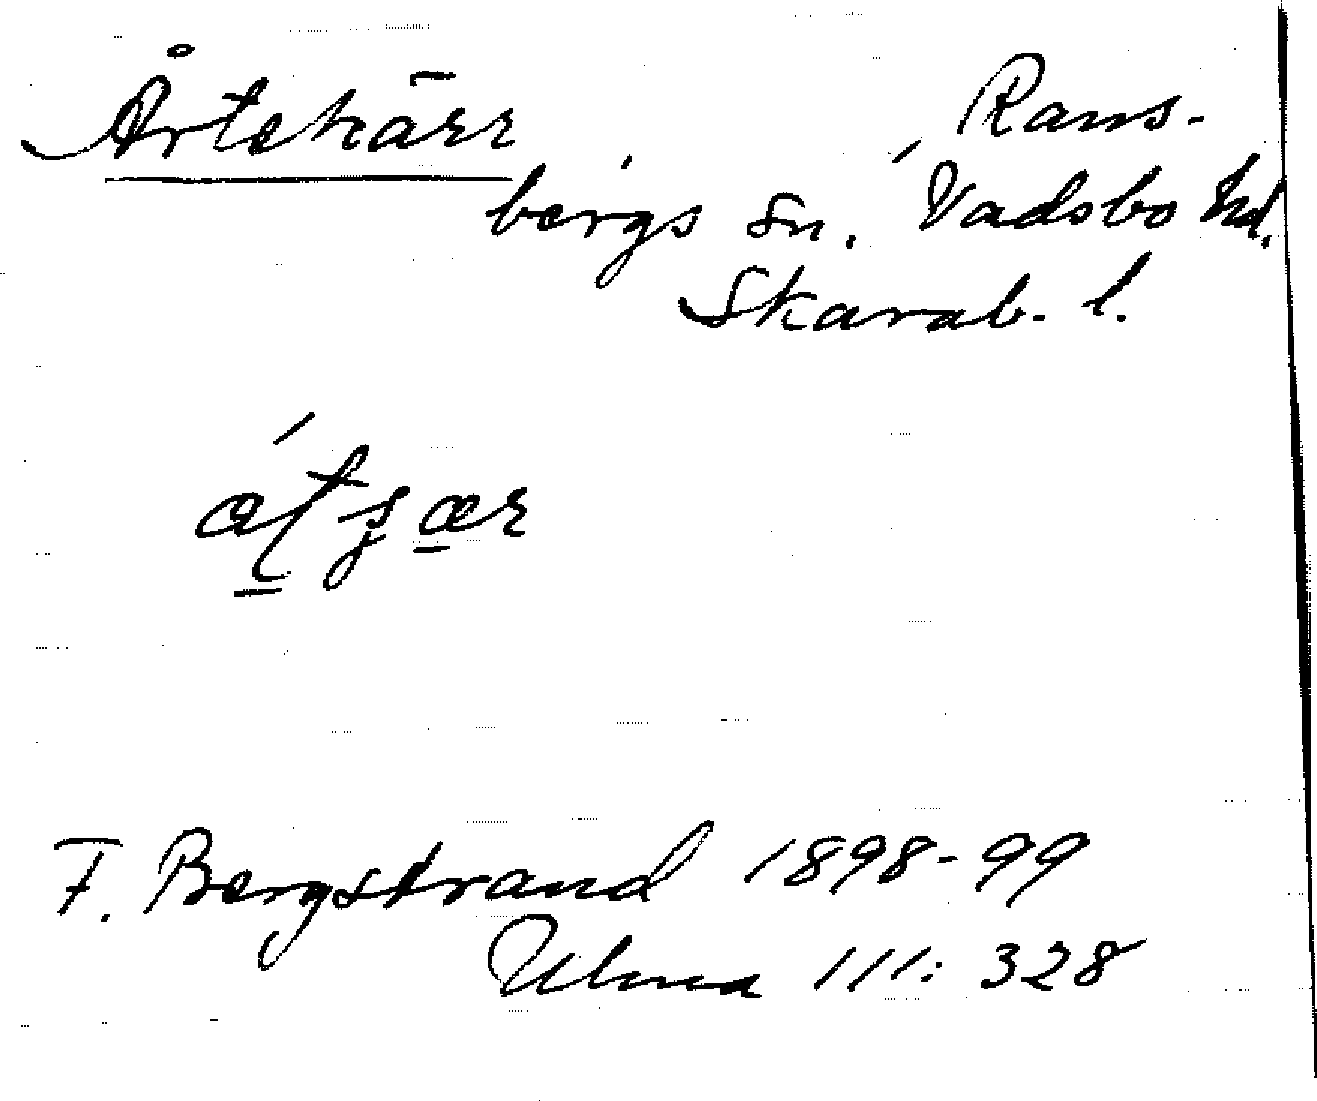 Årtekärr Rans-
bergs sn. Vadsbo hd.
Skarab. l.
F. Bergstrand 1898-99
Ulma 111: 328